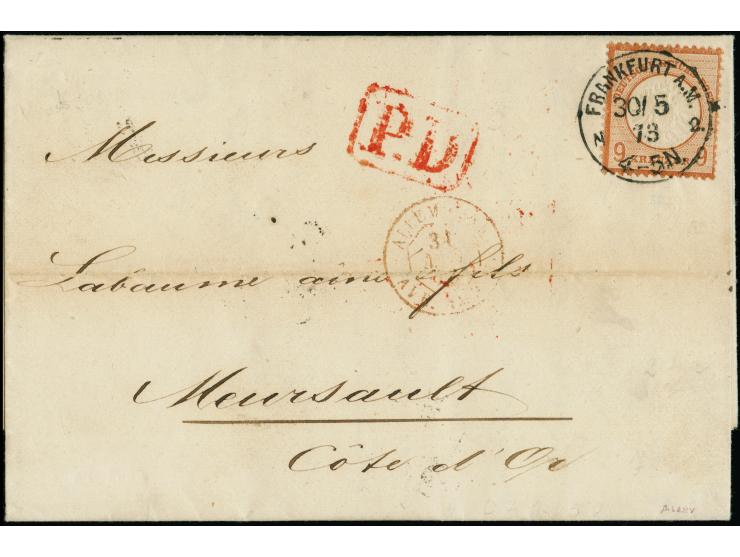 FRANKFURT A.M.
30/5
73
4-5N
9 KR 9
P.D
Messieurs
ALLEM
31
Labaume ainé & fils
Meursault
Côte d'Or